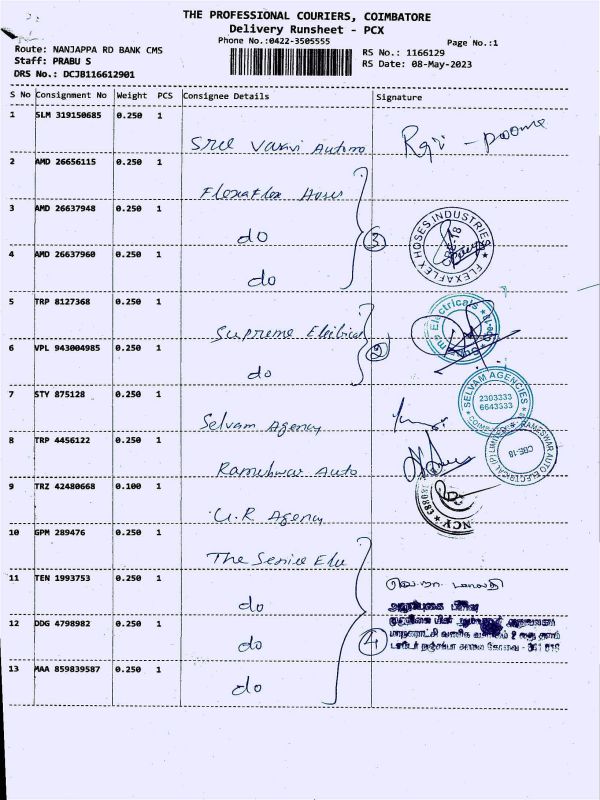 THE PROFESSIONAL COURIERS, COIMBATORE
Delivery Runsheet - PCX
Phone No.:0422-3505555
Page No.:1
Route: NANJAPPA RD BANK CMS
RS No.: 1166129
Staff: PRABU S
RS Date: 08-May-2023
DRS No.: DCJB116612901
S No Consignment No Weight PCS Consignee Details Signature
1 SLM 319150685 0.250 1
Sree
2 AMD 26656115 0.250 1
Flexaflex Hoses
3 AMD 26637948 0.250 1
do 3
4 AMD 26637960 0.250 1
do
FLEXAFLEX HOSES INDUSTRIES
CBE-18
5 TRP 8127368 0.250 1
Supreme
6 VPL 943004985 0.250 1
do 2
Electricals
7 STY 875128 0.250 1
Selvam Agency
SELVAM AGENCIES
2303333
6643333
8 TRP 4456122 0.250 1
Rameshwar Auto
RAMESWAR AUTO ELECTRICAL (P) LIMITED
CBE-18
9 TRZ 42480668 0.100 1
U.R Agency
10 GPM 289476 0.250 1
The
11 TEN 1993753 0.250 1
do
12 DDG 4798982 0.250 1
do 4
13 MAA 859839587 0.250 1
do